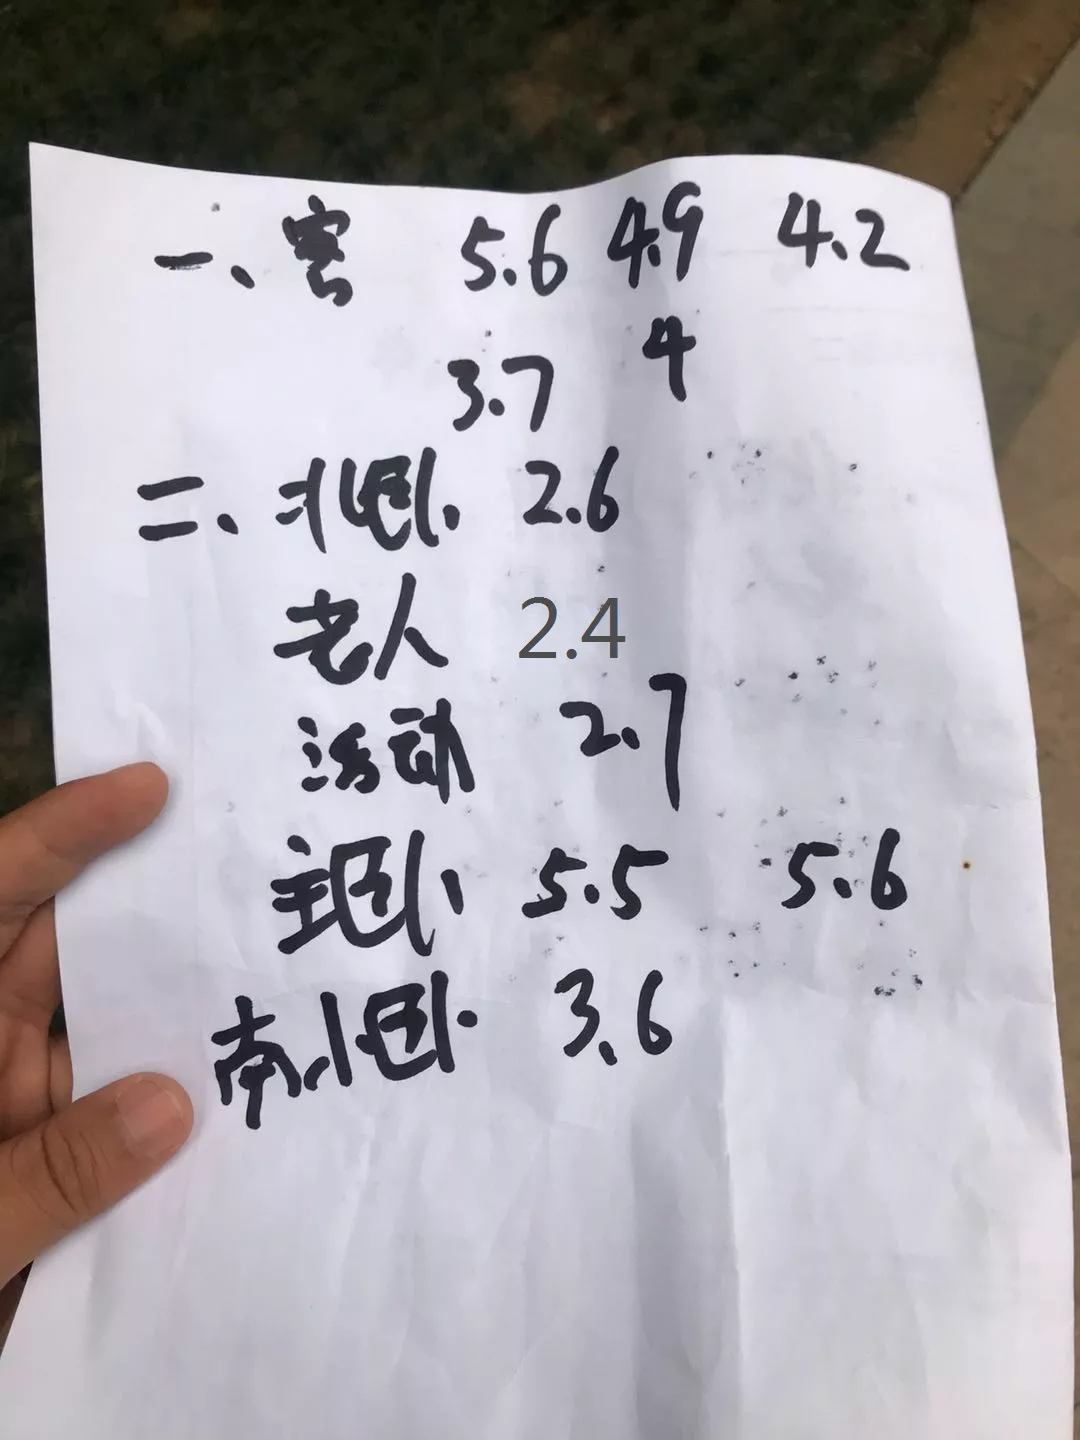 一、客 5.6 4.9 4.2
3.7 4
二、北卧. 2.6
老人 2.4
活动 2.7
主卧、5.5 5.6
南小卧. 3.6